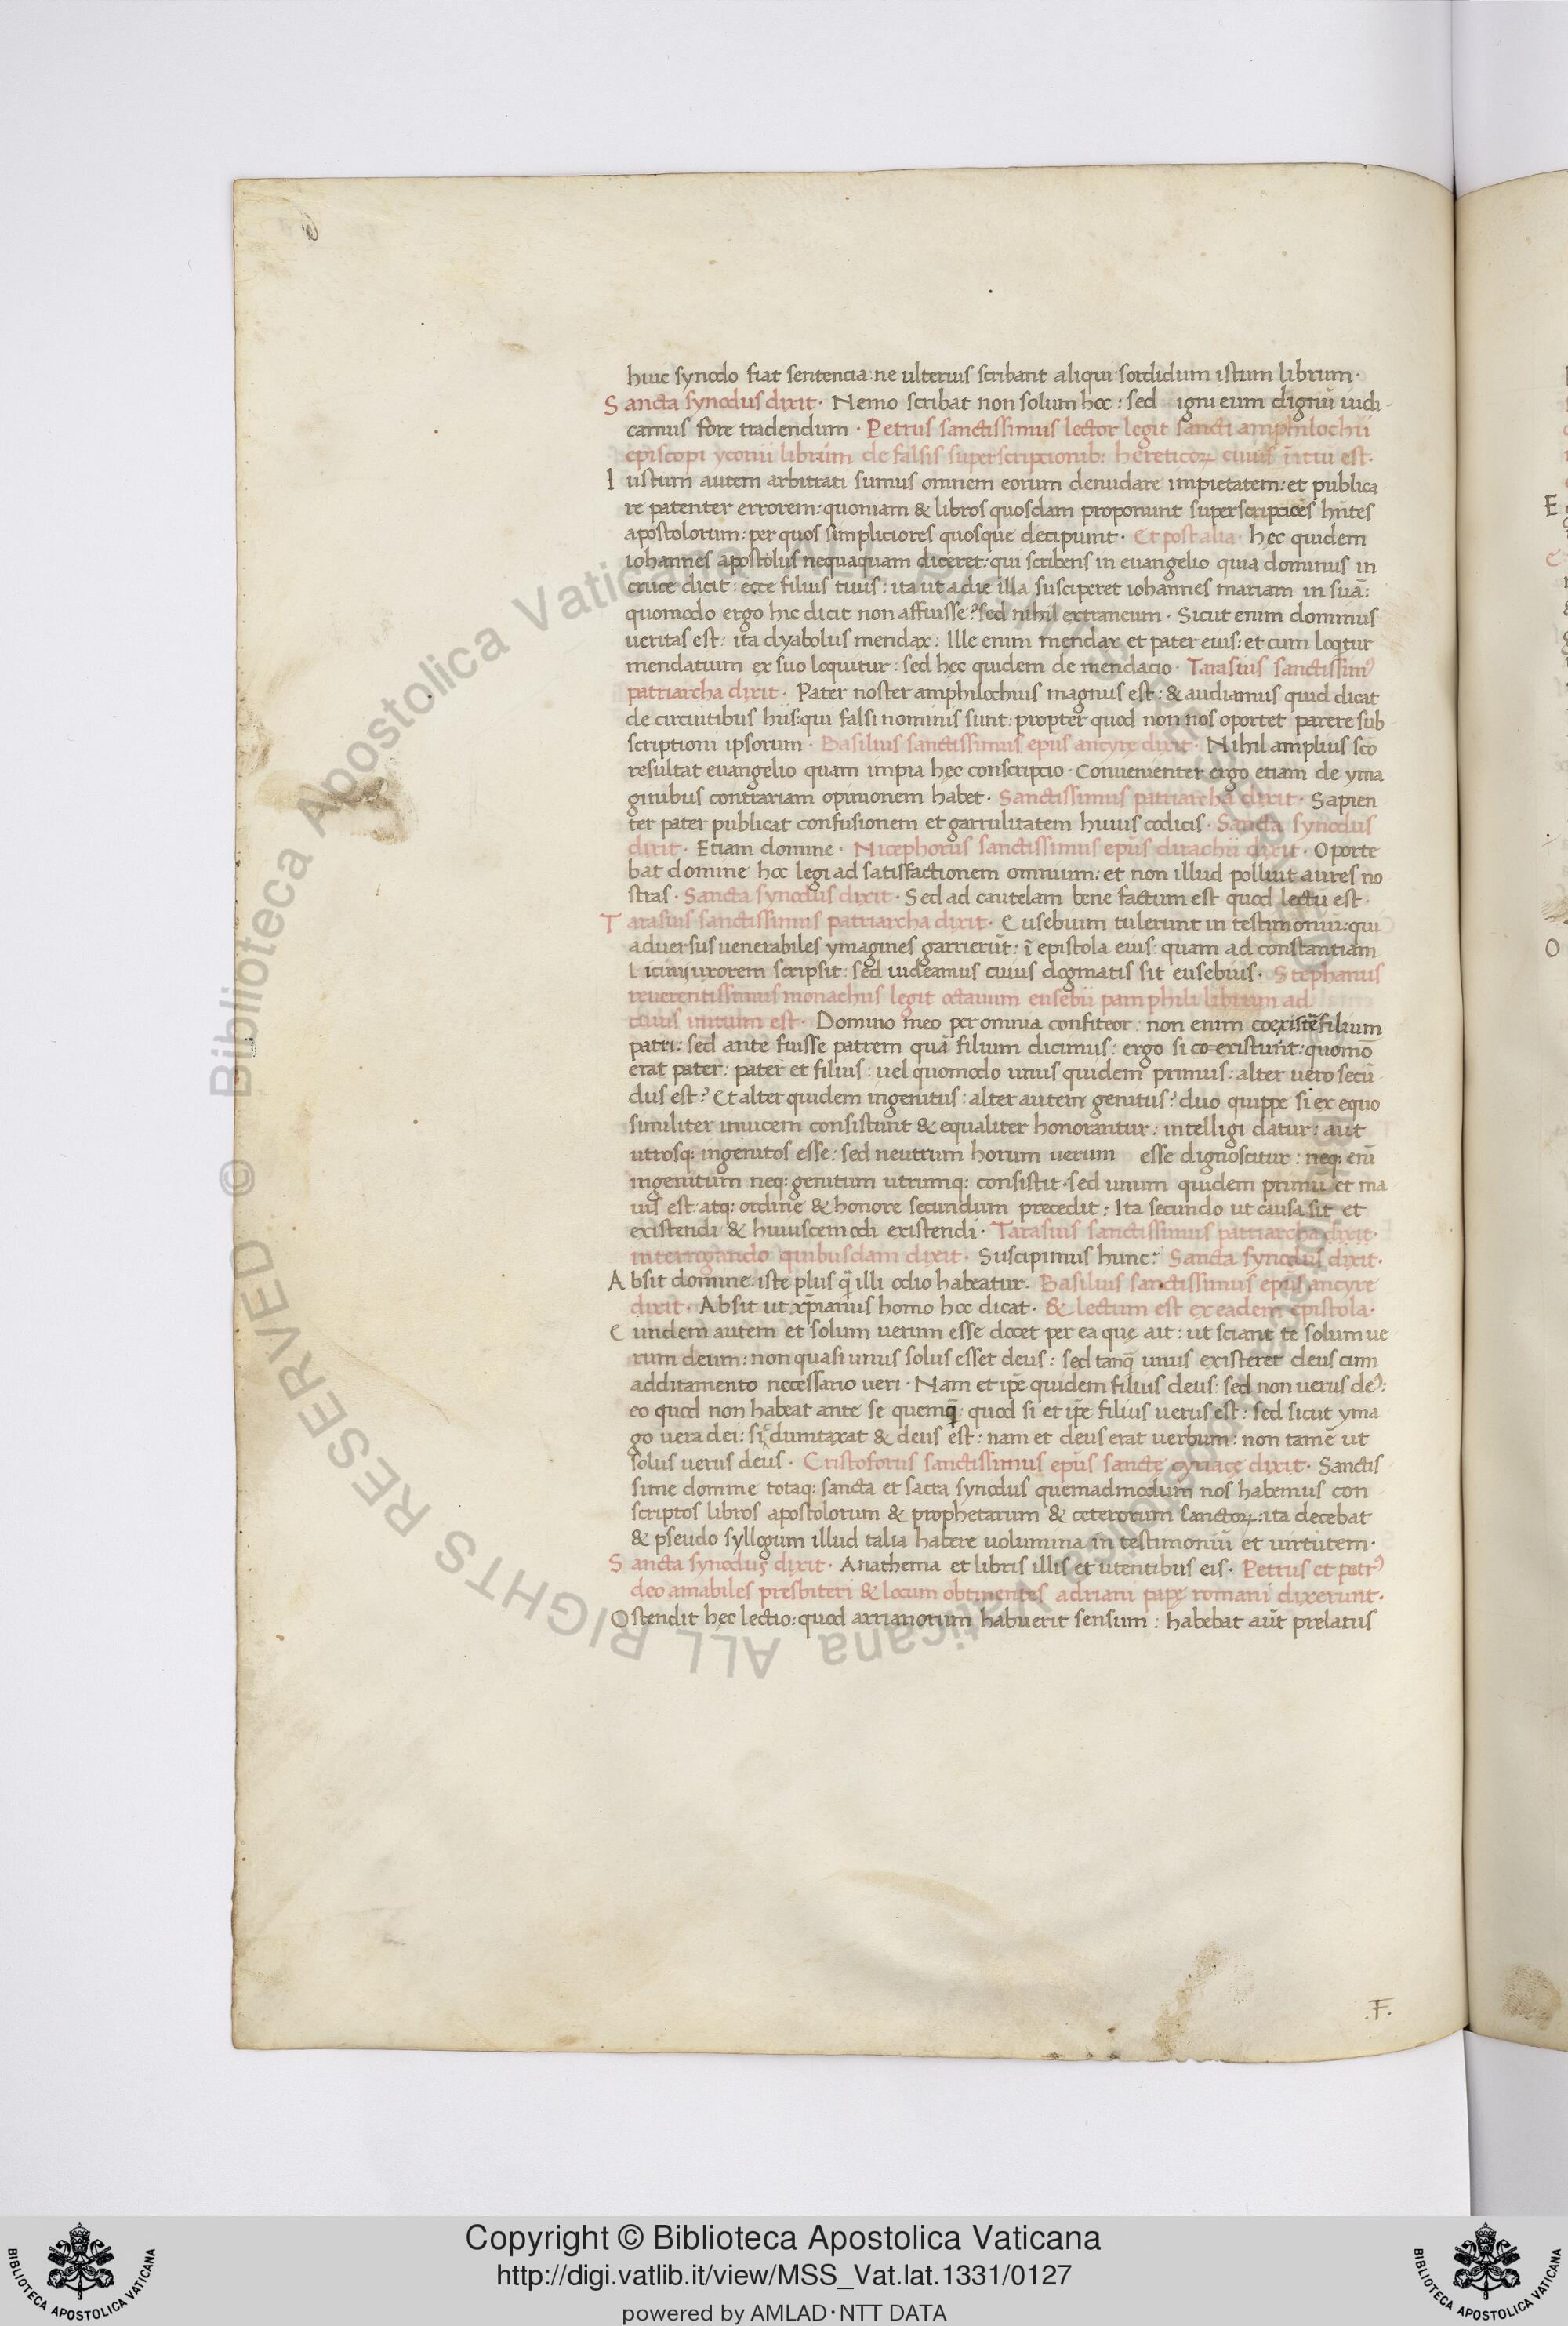 huic synodo fiat sentencia: ne ulterius scribant aliqui sordidum istum librum.
Sancta synodus dixit. Nemo scribat non solum hoc: sed igni eum dignū iudi
camus fore tradendum. Petrus sanctissimus lector legit sancti amphilochii
episcopi yconii librum de falsis superscripcionib: hereticoꝝ cuius īitiū est.
Iustum autem arbitrati sumus omnem eorum denudare impietatem: et publica
re patenter errorem: quoniam & libros quosdam proponunt superscripcōēs hn̄tes
apostolorum: per quos simpliciores quosque decipiunt. Et post alia. hec quidem
iohannes apostolus nequaquam diceret: qui scribens in euangelio quia dominus in
cruce dicit: ecce filius tuus: ita ut a die illa susciperet iohannes mariam in suā:
quomodo ergo hic dicit non affuisse? sed nihil extraneum. Sicut enim dominus
ueritas est: ita dyabolus mendax: Ille enim mendax et pater eius: et cum loqtur
mendatium ex suo loquitur: sed hec quidem de mendacio. Tarasius sanctissim⁹
patriarcha dixit. Pater noster amphilochius magnus est: & audiamus quid dicat
de circuitibus hiis: qui falsi nominis sunt: propter quod non nos oportet parere sub
scriptioni ipsorum. Basilius sanctissimus ep̄us ancyre dixit. Nihil amplius sc̄o
resultat euangelio quam impia hec conscripcio. Conuenienter ergo etiam de yma
ginibus contrariam opinionem habet. Sanctissimus patriarcha dixit. Sapien
ter pater publicat confusionem et garrulitatem huius codicis. Sancta synodus
dixit. Etiam domine. Nicephorus sanctissimus ep̄us dirachii dixit. Oporte
bat domine hoc legi ad satisfactionem omnium: et non illud polluit aures no
stras. Sancta synodus dixit. Sed ad cautelam bene factum est quod lectū est.
Tarasius sanctissimus patriarcha dixit. Eusebium tulerunt in testimoniū: qui
aduersus uenerabiles ymagines garrierūt: ī epistola eius: quam ad constantiam
Licinij uxorem scripsit: sed uideamus cuius dogmatis sit eusebius. Stephanus
reuerentissimus monachus legit octauum eusebii pamphili librum ad
cuius initium est. Domino meo per omnia confiteor: non enim coexistē filium
patri: sed ante fuisse patrem quā filium dicimus: ergo si co existunt: quomō
erat pater: pater et filius: uel quomodo unus quidem primus: alter uero secū
dus est? Et alter quidem ingenitus: alter autem genitus? duo quippe si ex equo
similiter inuicem consistunt & equaliter honorantur: intelligi datur: aut
utrosq: ingenitos esse: sed neutrum horum uerum esse dignoscitur: neq: enī
ingenitum neq: genitum utrumq: consistit. sed unum quidem primū et ma
ius est atq: ordine & honore secundum precedit: Ita secundo ut causa sit et
existendi & huiuscemodi existendi. Tarasius sanctissimus patriarcha dixit.
interrogando quibusdam dixit. Suscipimus hunc? Sancta synodus dixit.
Absit domine: iste plus q̄ illi odio habeatur. Basilius sanctissimus ep̄us ancyre
dixit. Absit ut xp̄ianus homo hoc dicat. & lectum est ex eadem epistola.
Eundem autem et solum uerum esse docet per ea que ait: ut sciant te solum ue
rum deum: non quasi unus solus esset deus: sed tanq̄ unus existeret deus cum
additamento necessario ueri. Nam et ip̄e quidem filius deus: sed non uerus de⁹:
eo quod non habeat ante se quemq̄: quod si et ip̄e filius uerus est: sed sicut yma
go uera dei: sic dumtaxat & deus est: nam et deus erat uerbum: non tamē ut
solus uerus deus. Cristoforus sanctissimus ep̄us sancte cyriace dixit. Sanctis
sime domine totaq: sancta et sacra synodus quemadmodum nos habemus con
scriptos libros apostolorum & prophetarum & ceterorum sanctoꝝ: ita decebat
& pseudo syllogum illud talia habere uolumina in testimoniū et uirtutem.
Sancta synodus dixit. Anathema et libris illis et utentibus eis. Petrus et petr⁹
deo amabiles presbiteri & locum obtinentes adriani pape romani dixerunt.
Ostendit hec lectio: quod arrianorum habuerit sensum: habebat aūt prelatus
.F.
© Biblioteca Apostolica Vaticana ALL RIGHTS RESERVED
Copyright © Biblioteca Apostolica Vaticana
http://digi.vatlib.it/view/MSS_Vat.lat.1331/0127
powered by AMLAD·NTT DATA
BIBLIOTECA APOSTOLICA VATICANA
BIBLIOTECA APOSTOLICA VATICANA